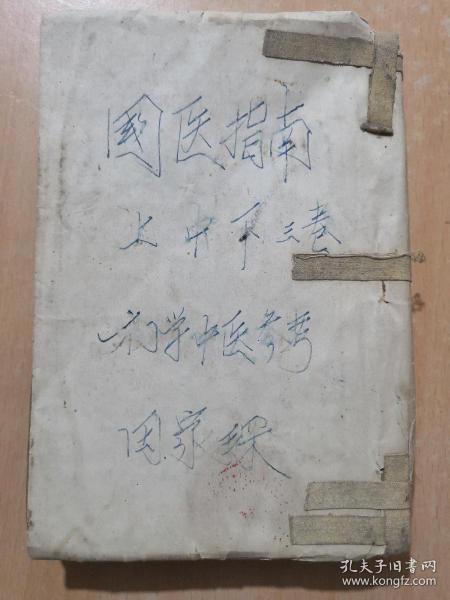 國医指南
上中下三卷
初学中医参考
孔夫子旧书网
www.kongfz.com